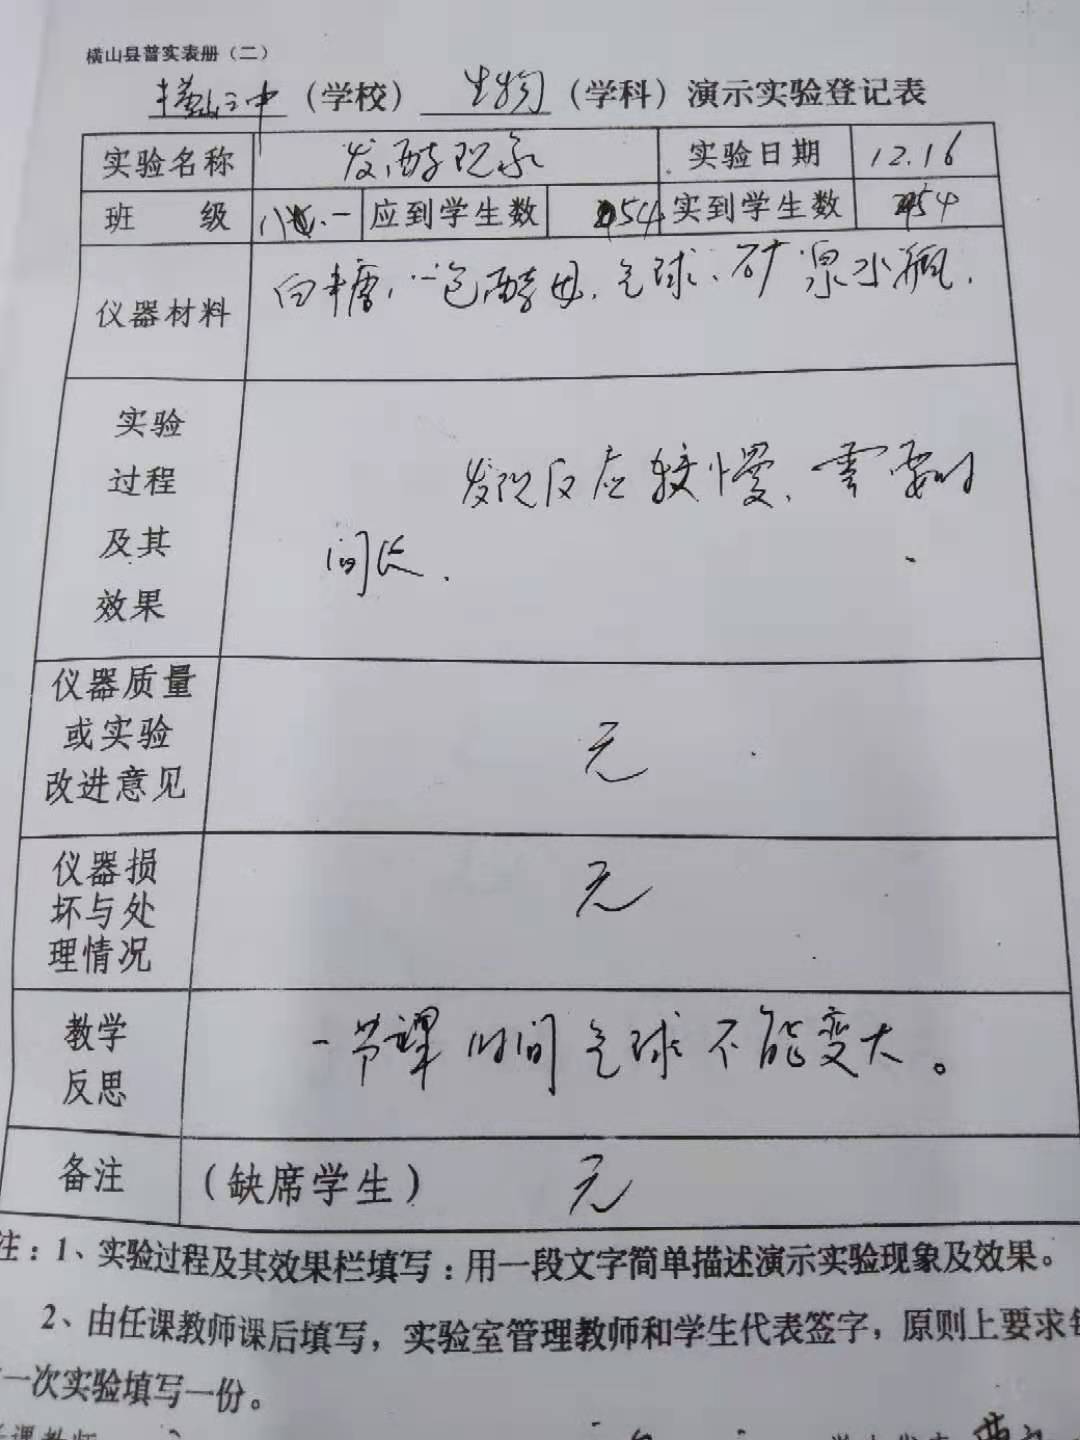 横山县普实表册（二）
横山三中（学校）生物（学科）演示实验登记表
实验名称 发酵现象 实验日期 12.16
班 级 八.一 应到学生数 54 实到学生数 54
仪器材料 白糖，一包酵母，气球、矿泉水瓶.
实验
过程
及其
效果
发现反应较慢，需要时
间长.
仪器质量
或实验
改进意见
无
仪器损
坏与处
理情况
无
教学
反思
一节课时间气球不能变大。
备注 （缺席学生） 无
注：1、实验过程及其效果栏填写：用一段文字简单描述演示实验现象及效果。
2、由任课教师课后填写，实验室管理教师和学生代表签字，原则上要求
一次实验填写一份。